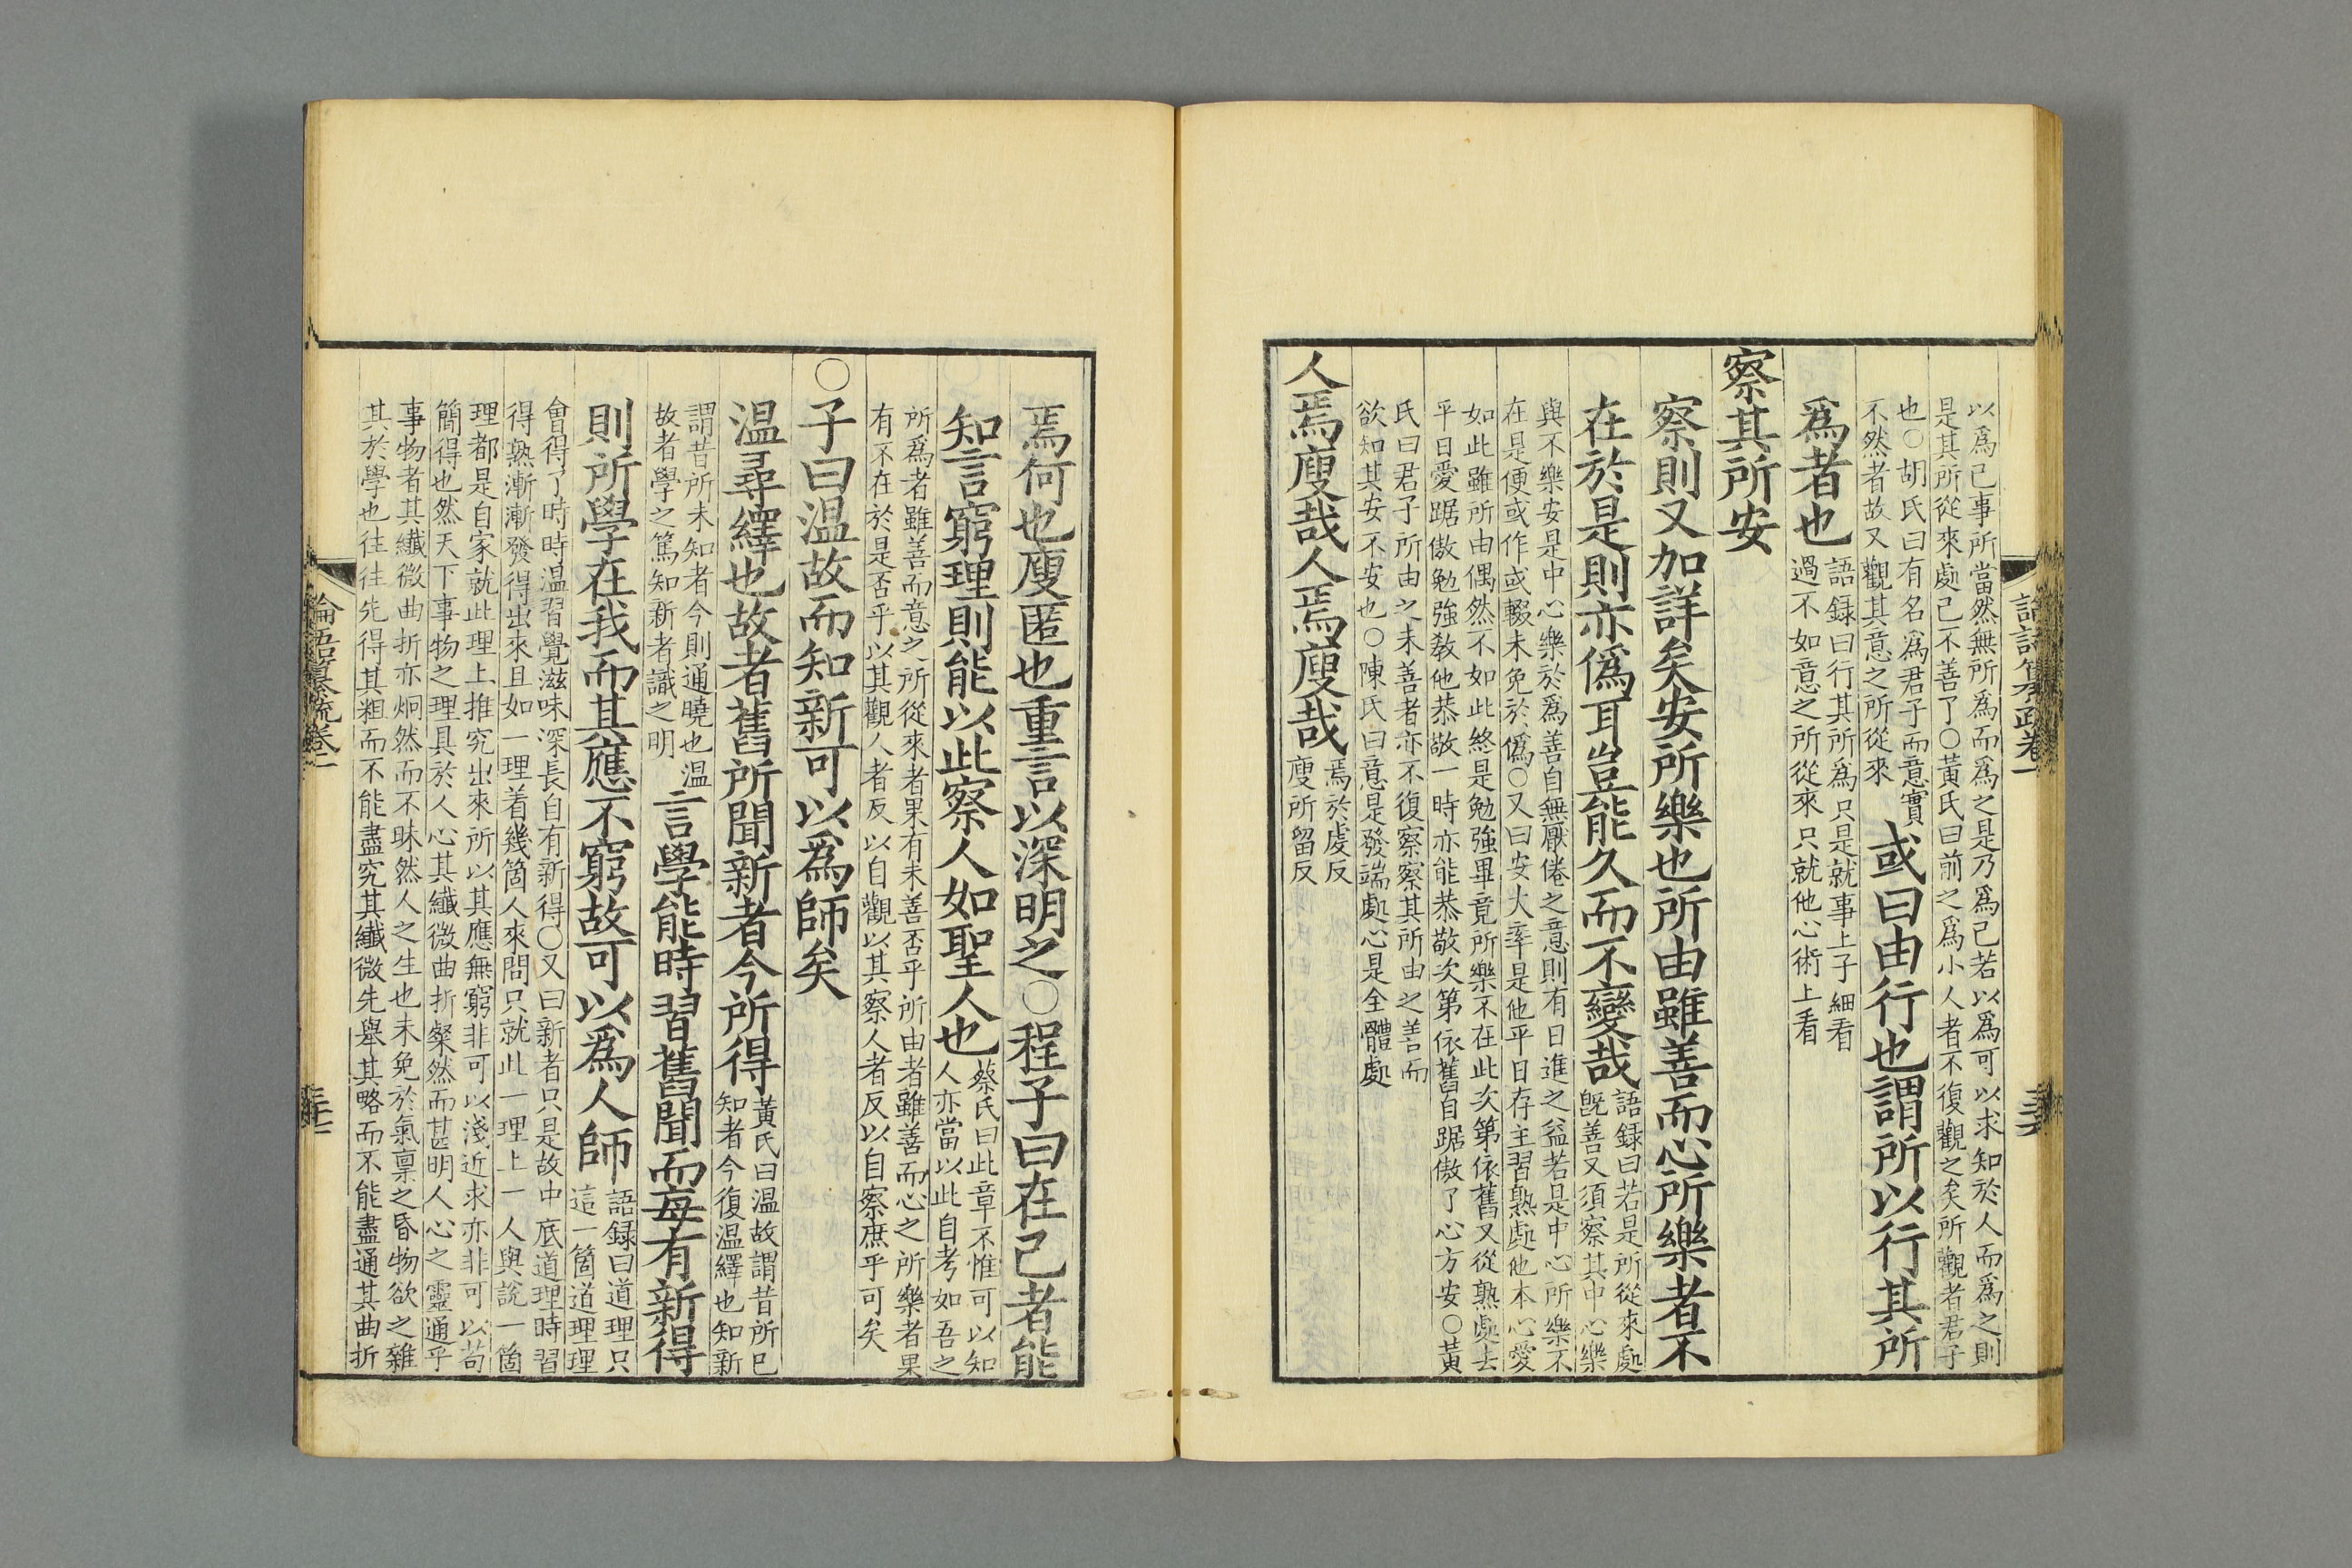 以爲己事所當然無所爲而爲之是乃爲己若以爲可以求知於人而爲之則
是其所從來處已不善了○黃氏曰前之爲小人者不復觀之矣所觀者君子
也○胡氏曰有名爲君子而意實
不然者故又觀其意之所從來
或曰由行也謂所以行其所
爲者也
語録曰行其所爲只是就事上子細看
過不如意之所從來只就他心術上看
察其所安
察則又加詳矣安所樂也所由雖善而心所樂者不
在於是則亦僞耳豈能久而不變哉
語録曰若是所從來處
旣善又須察其中心樂
與不樂安是中心樂於爲善自無厭倦之意則有日進之益若是中心所樂不
在是便或作或輟未免於僞○又曰安大率是他平日存主習熟處他本心愛
如此雖所由偶然不如此終是勉強畢竟所樂不在此次第依舊又從熟處去
平日愛踞傲勉強敎他恭敬一時亦能恭敬次第依舊自踞傲了心方安○黃
氏曰君子所由之未善者亦不復察察其所由之善而
欲知其安不安也○陳氏曰意是發端處心是全體處
人焉廋哉人焉廋哉
焉於虔反
廋所留反
論語纂疏卷一
焉何也廋匿也重言以深明之○程子曰在己者能
知言窮理則能以此察人如聖人也
蔡氏曰此章不惟可以知
人亦當以此自考如吾之
所爲者雖善而意之所從來者果有未善否乎所由者雖善而心之所樂者果
有不在於是否乎以其觀人者反以自觀以其察人者反以自察庶乎可矣
○子曰温故而知新可以爲師矣
温尋繹也故者舊所聞新者今所得
黃氏曰温故謂昔所已
知者今復温繹也知新
謂昔所未知者今則通曉也温
故者學之篤知新者識之明
言學能時習舊聞而每有新得
則所學在我而其應不窮故可以爲人師
語録曰道理只
這一箇道理理
會得了時時温習覺滋味深長自有新得○又曰新者只是故中底道理時習
得熟漸漸發得出來且如一理着幾箇人來問只就此一理上一人與說一箇
理都是自家就此理上推究出來所以其應無窮非可以淺近求亦非可以苟
簡得也然天下事物之理具於人心其纖微曲折粲然而甚明人心之靈通乎
事物者其纖微曲折亦炯然而不昧然人之生也未免於氣稟之昏物欲之雜
其於學也往往先得其粗而不能盡究其纖微先舉其略而不能盡通其曲折
論語纂疏卷一